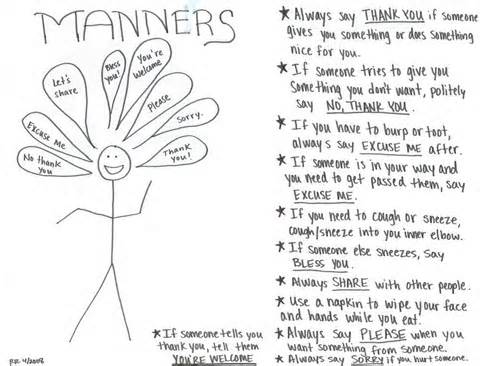 MANNERS
No thank you
Excuse Me
Let's share
Bless you!
You're welcome
Please
Sorry.
Thank you!
★ Always say THANK YOU if someone
gives you something or does something
nice for you.
★ If someone tries to give you
something you don't want, politely
say NO, THANK YOU.
★ If you have to burp or toot,
always say EXCUSE ME after.
★ If someone is in your way and
you need to get passed them, say
EXCUSE ME.
★ If you need to cough or sneeze,
cough/sneeze into you inner elbow.
★ If someone else sneezes, say
BLESS YOU.
★ Always SHARE with other people.
★ Use a napkin to wipe your face
and hands while you eat.
★ Always say PLEASE when you
want something from someone.
★ Always say SORRY if you hurt someone.
★ If someone tells you
thank you, tell them
YOU'RE WELCOME
RR 4/2008